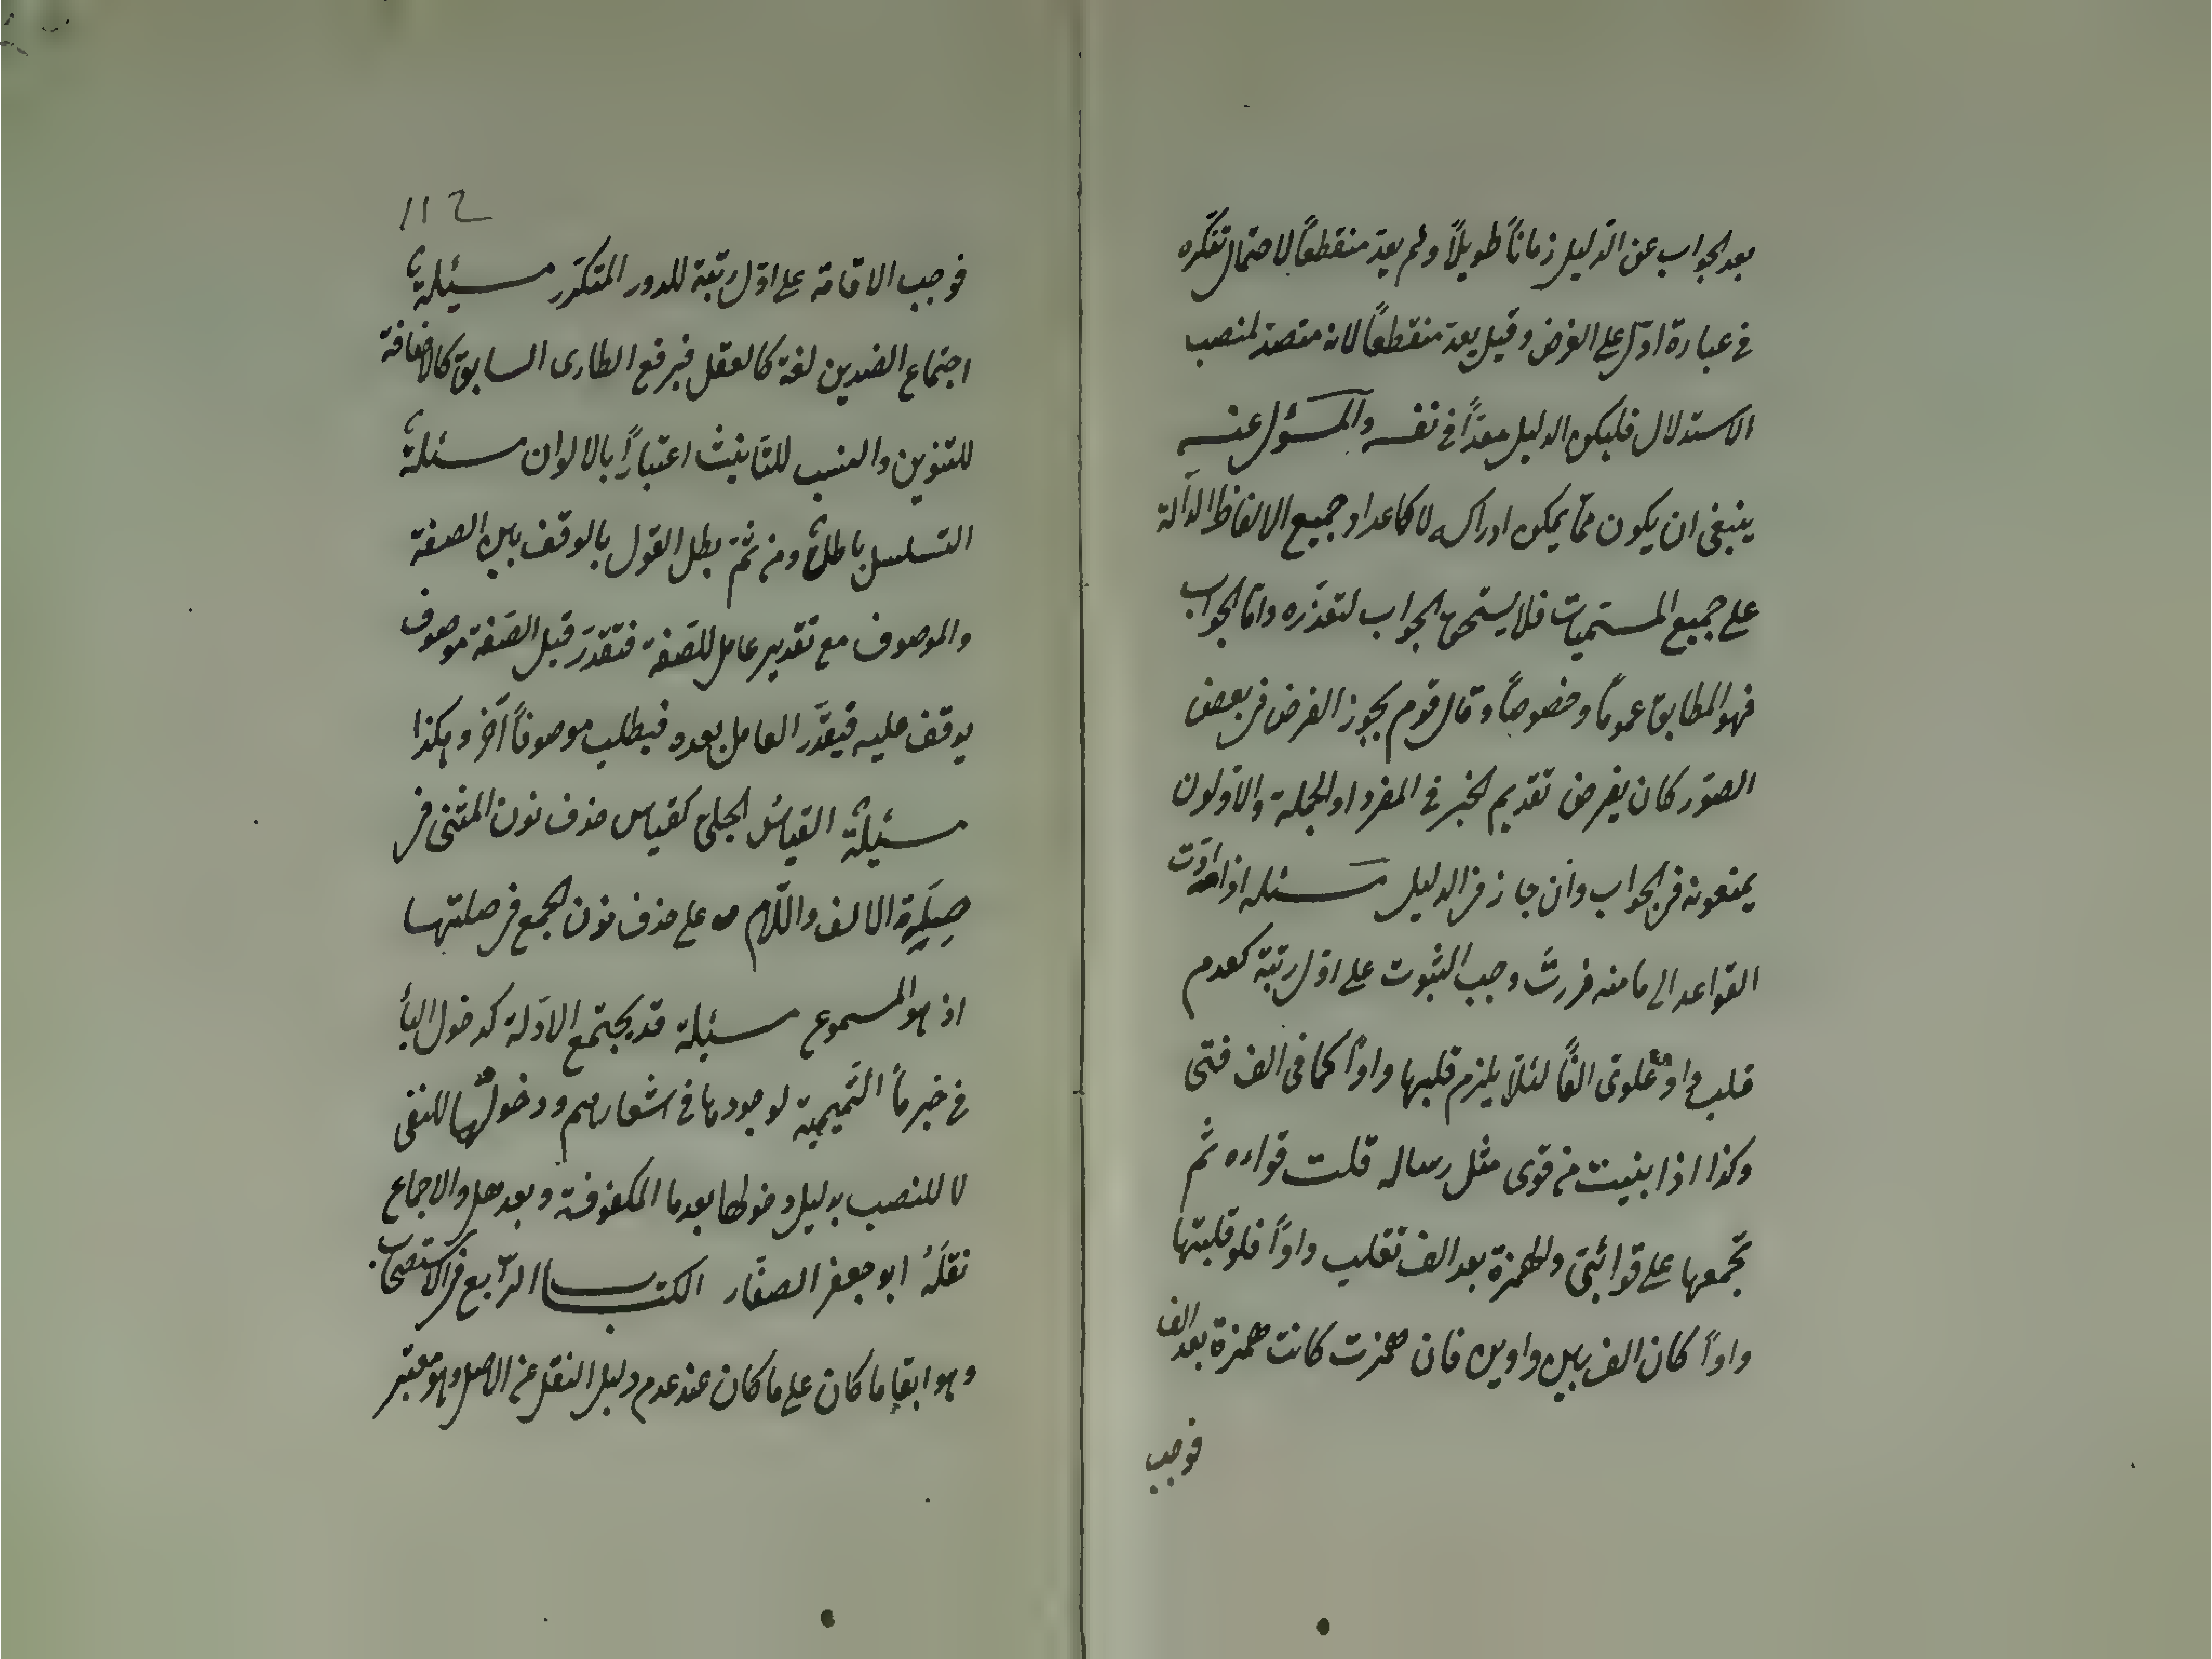 بعد الجواب عن الدّليل زماناً طويلاً ولم يعدّ منقطعاً لاحتمال تفكّره
فى عبارة ادلّ على الغرض وقيل يعدّ منقطعاً لانه متصدّ لمنصب
الاستدلال فليكن الدليل معدّاً فى نفسه والمسؤل عنه
ينبغى ان يكون ممّا يمكن ادراكه لا كاعداد جميع الالفاظ الدّالة
على جميع المسمّيات فلا يستحق الجواب لتعذّره وامّا الجواب
فهو المطابق عموماً وخصوصاً وقال قوم يجوز الفرض فى بعض
الصوَر كان يفرض تقديم الخبر فى المفرد او الجملة والاوّلون
يمنعونه فى الجواب وان جاز فى الدليل مسئله اذا ادّت
القواعد الى ما منه فررتَ وجب الثبوت على اوّل رتبة كعدم
قلب واو علوىّ الفاً لئلّا يلزم قلبها واواً كما فى الف فتى
وكذا اذا بنيت من قوى مثل رساله قلت قواءه ثم
تجمعها على قوائىّ والهمزة بعد الف تقلب واواً فلو قلبتها
واواً كان الف بين واوين فان همزت كانت همزة بعد الف
فوجب
112
فوجب الاقامة على اوّل رتبة للدور المتكرّر مسئلة
اجتماع الضدين لغة كالعقل فيرفع الطارى السابق كالاضافة
للتنوين والنسب للتأنيث اعتباراً بالالوان مسئلة
التسلسل باطل ومن ثمّ بطل القول بالوقف بين الصفة
والموصوف مع تقدير عامل للصّفة فتقدّر قبل الصّفة موصوف
يوقف عليه فيقدَّر العامل بعده فيطلب موصوفاً آخر وهكذا
مسئلة القياسُ الجلىّ كقياس حذف نون المثنى فى
صِلَةِ الالف واللّام على حذف نون الجمع فى صلتها
اذ هو المسموع مسئلة قد يجتمع الادّلة كدخول الباء
فى خبر ما التّميمية لوجودها فى اشعارهم ودخولها للنفى
لا للنصب بدليل دخولها بعد ما المكفوفة وبعد هل والاجماع
نقلَهُ ابو جعفر الصفّار الكتاب الرّابع فى الاستصحاب
وهو ابقاء ما كان على ما كان عند عدم دليل النقل عن الاصل وهو معتبر